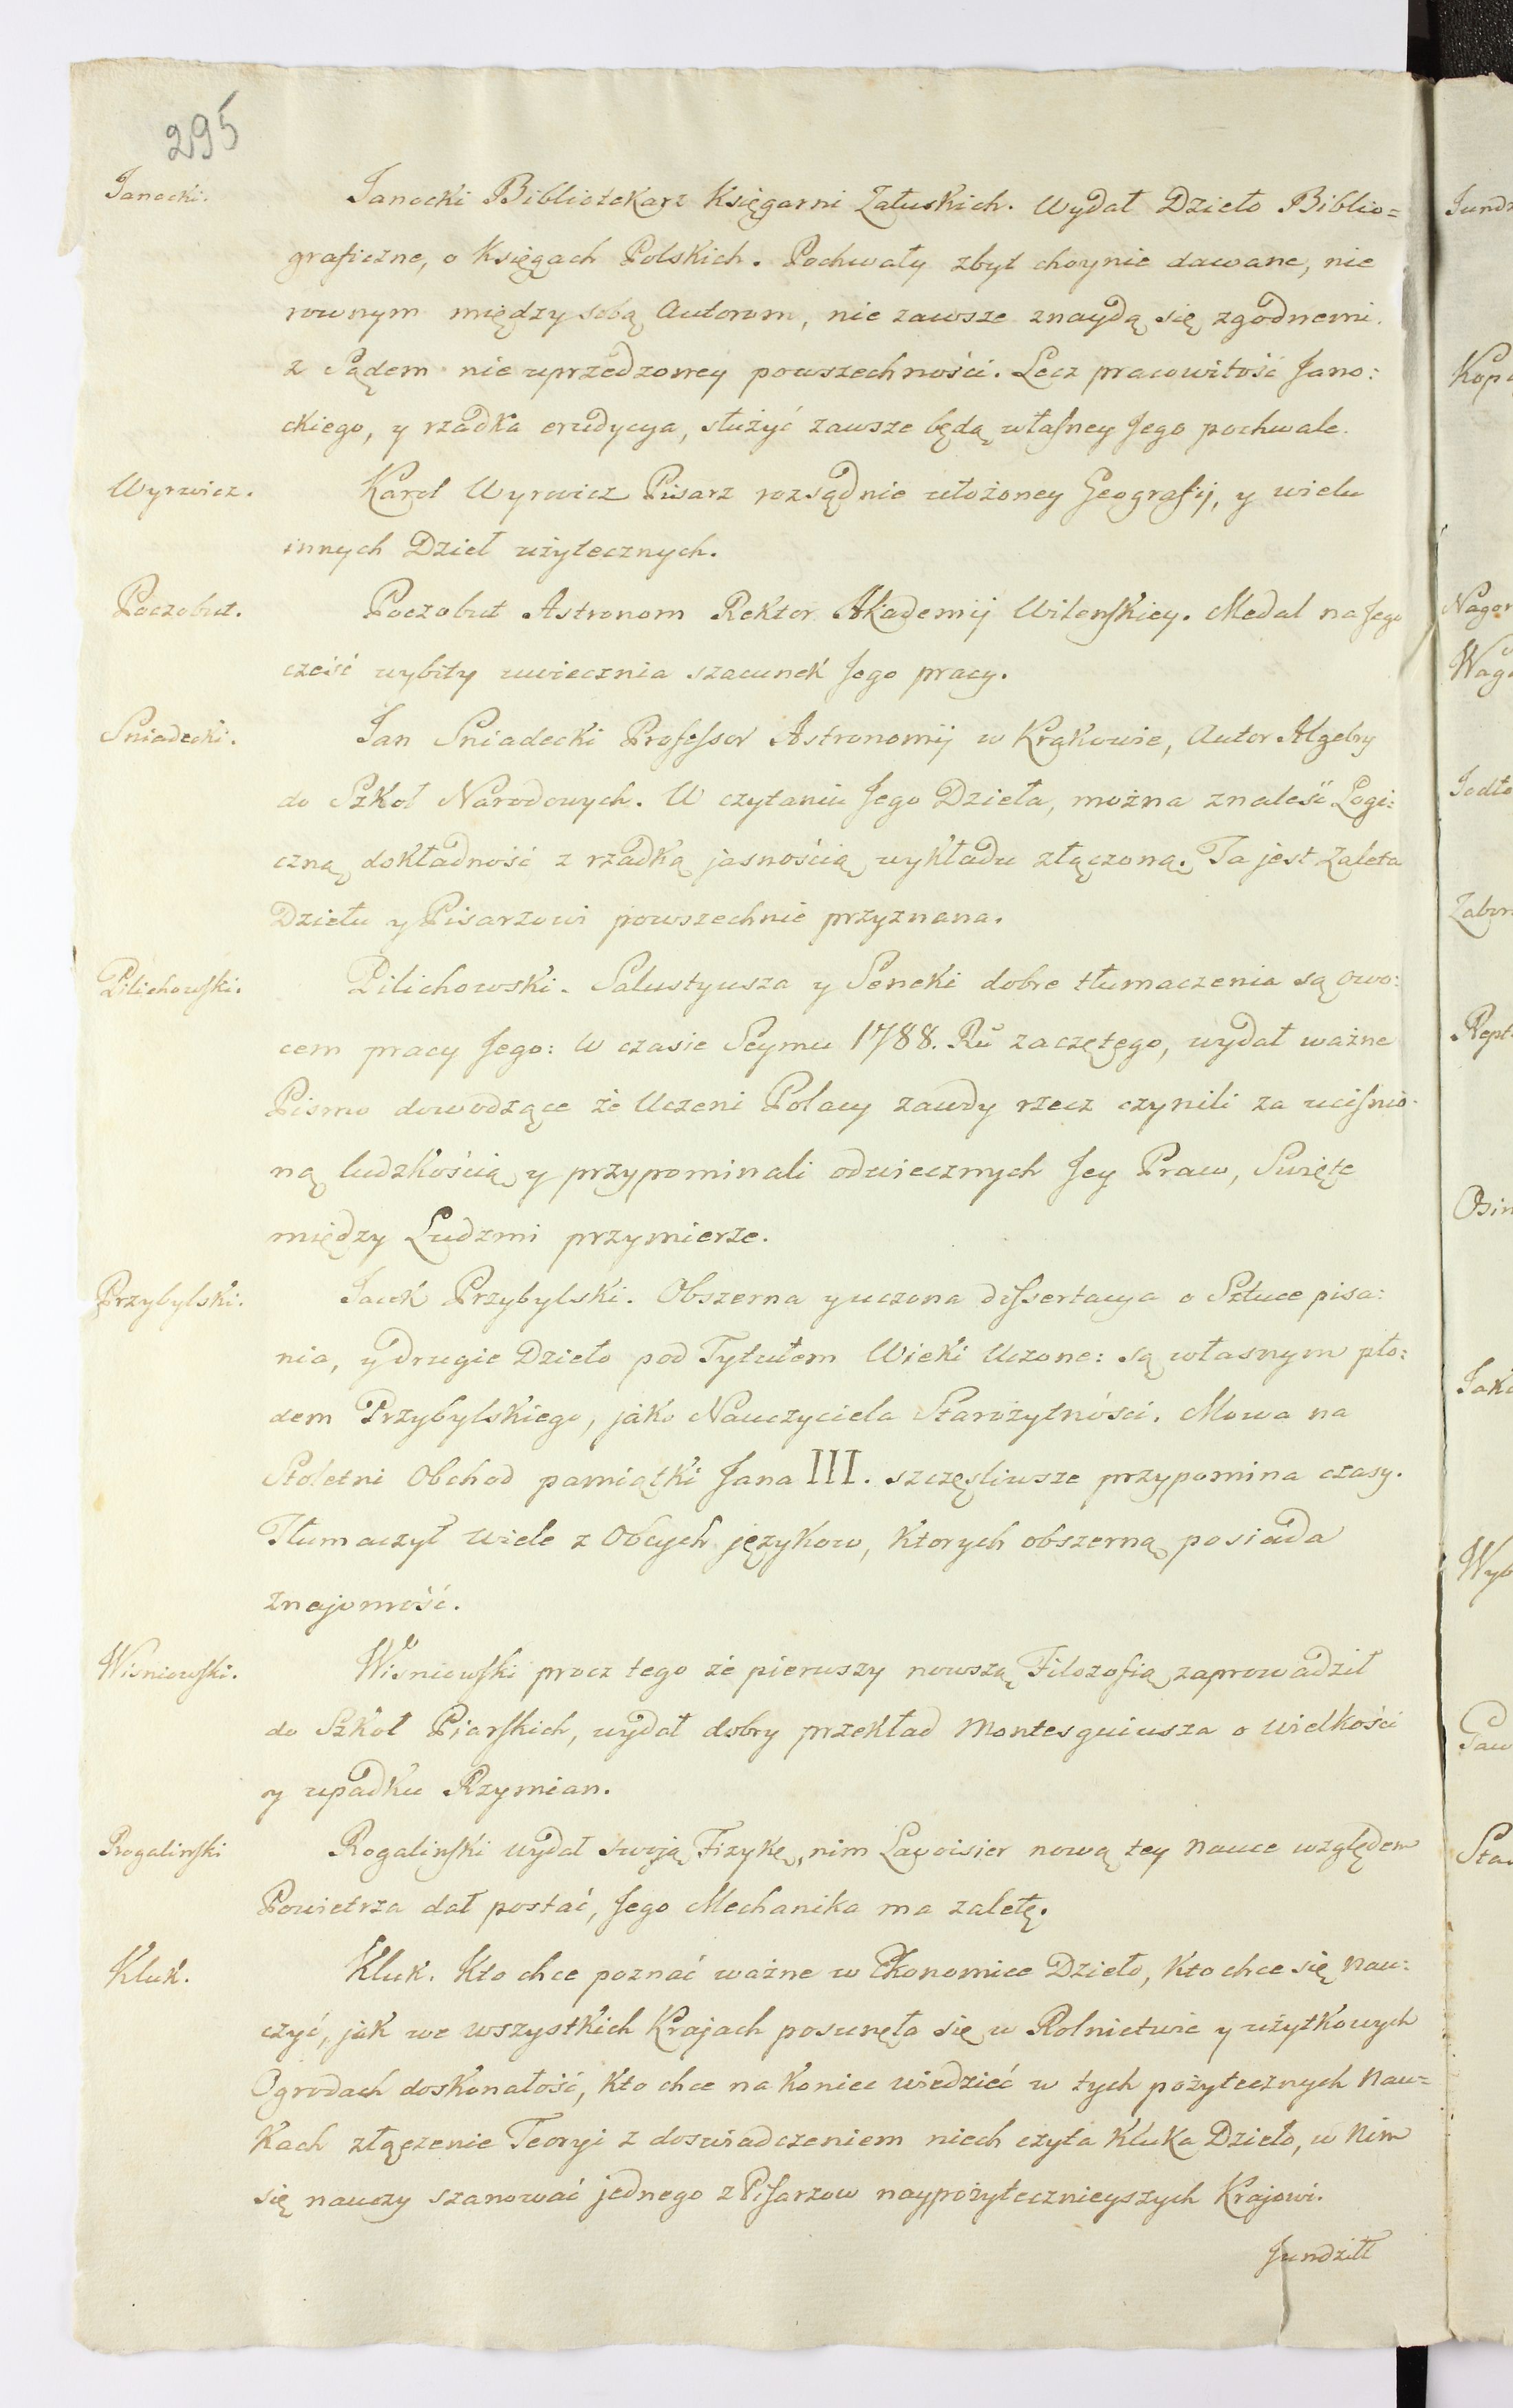 295
Janocki.
Janocki Bibliotekarz Księgarni Załuskich. Wydał Dzieło Biblio=
graficzne, o Księgach Polskich. Pochwały zbyt choynie dawane, nie
rownym między sobą Autorom, nie zawsze znaydą się zgodnemi
z Sądem nie uprzedzoney powszechności. Lecz pracowitość Jano:
ckiego, y rzadka erudycya, służyć zawsze będą własney Jego pochwale.
Wyrwicz.
Karol Wyrwicz Pisarz rozsądnie ułożoney Geografij, y wielu
innych Dzieł użytecznych.
Poczobut.
Poczobut Astronom Rektor Akademij Wilenskiey. Medal na Jego
cześć wybity uwiecznia szacunek Jego pracy.
Sniadecki.
Jan Sniadecki Professor Astronomij w Krakowie, Autor Algebry
do Szkoł Narodowych. W czytaniu Jego Dzieła, można znaleść Logi:
czną dokładność z rzadką jasnością wykładu złączoną. Ta jest Zaleta
Dziełu y Pisarzowi powszechnie przyznana.
Pilichowski.
Pilichowski. Salustyusza y Seneki dobre tłumaczenia są owo:
cem pracy Jego: W czasie Seymu 1788. Ru zaczętego, wydał ważne
Pismo dowodzące że Uczeni Polacy zawdy rzecz czynili za uciśnio-
ną ludzkością y przypominali odwiecznych Jey Praw, Swięte
między Ludzmi przymierze.
Przybylski.
Jacek Przybylski. Obszerna y uczona dissertacya o Sztuce pisa:
nia, y drugie Dzieło pod Tytułem Wieki Uczone: są własnym pło:
dem Przybylskiego, jako Nauczyciela Starożytności. Mowa na
Stoletni Obchod pamiątki Jana III. szczęsliwsze przypomina czasy.
Tłumaczył wiele z Obcych językow, ktorych obszerną posiada
znajomość.
Wisniewski.
Wiśniewski procz tego że pierwszy nowszą Filozofią zaprowadził
do Szkoł Piarskich, wydał dobry przekład Montesquiusza o wielkości
y upadku Rzymian.
Rogalinski
Rogalinski wydał swoją Fizykę, nim Lavoisier nową tey Nauce względem
Powietrza dał postać, Jego Mechanika ma zaletę.
Kluk.
Kluk. Kto chce poznać ważne w Ekonomice Dzieło, Kto chce się nau:
czyć, jak we wszystkich Krajach posunęła się w Rolnictwie y użytkowych
Ogrodach doskonałość, Kto chce na koniec wiedzieć w tych pożytecznych Nau=
kach złączenie Teoryi z doswiadczeniem niech czyta Kluka Dzieło, w Nim
się nauczy szanować jednego z Pisarzow naypożytecznieyszych Krajowi.
Jundziłł